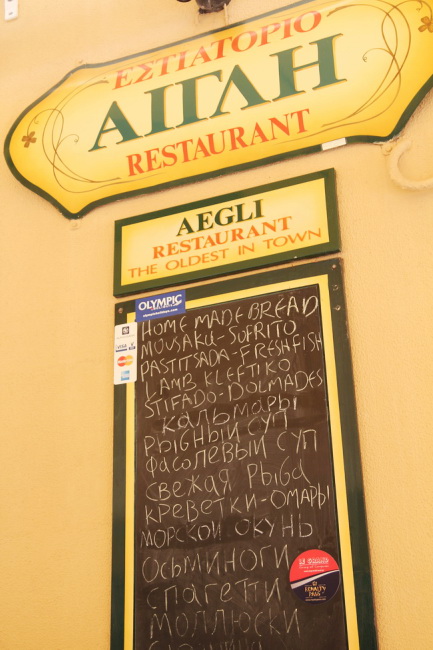 ΕΣΤΙΑΤΟΡΙΟ
ΑΙΓΛΗ
RESTAURANT
AEGLI
RESTAURANT
THE OLDEST IN TOWN
OLYMPIC
HOME MADE BREAD
MOUSAKU-SOFRITO
PASTITSADA-FRESH FISH
LAMB KLEFTIKO
STIFADO-DOLMADES
КАЛЬМАРЫ
РЫБНЫЙ СУП
ФАСОЛЕВЫЙ СУП
СВЕЖАЯ РЫБА
КРЕВЕТКИ-ОМАРЫ
МОРСКОЙ ОКУНЬ
ОСЬМИНОГИ
СПАГЕТТИ
МОЛЛЮСКИ